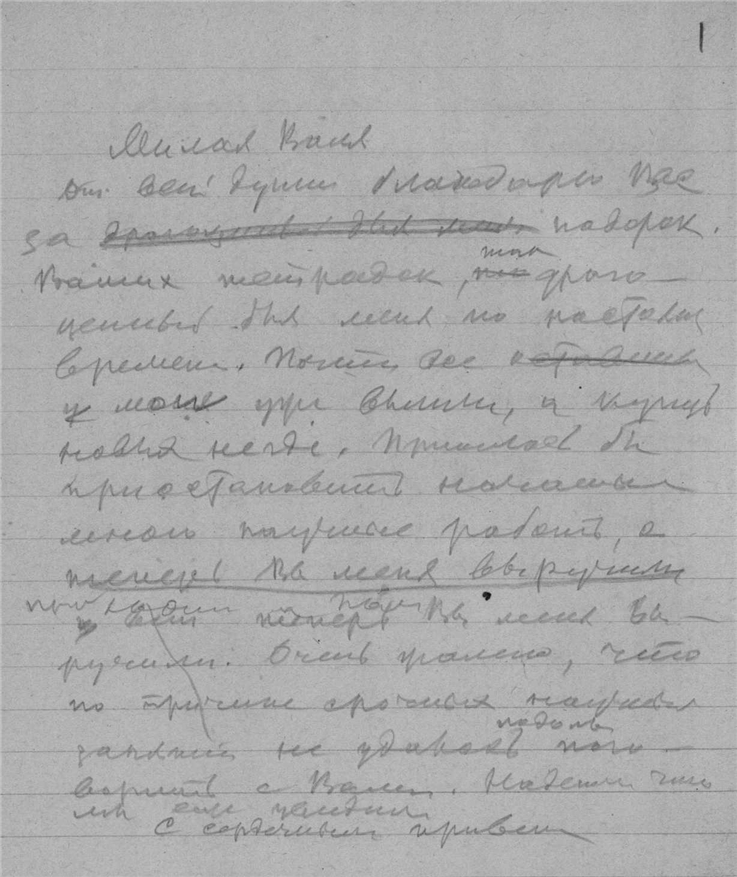 1
Милая Валя
От всей души благодарю Вас
за драгоценный для меня подарок.
Ваших тетрадок, так драго-
ценных для меня по настоящ
времени. Почти все оставшиеся
у меня уже вышли, а купить
новых негде. Пришлось бы
приостановить начатые
мною научные работы, а
теперь Вы меня выручили
теперь Вы меня вы-
ручили. Очень жалею, что
по причине срочных научных
занятий не удалось подольше пого-
ворить с Вами. Надеюсь что
мы еще увидимся
С сердечным приветом